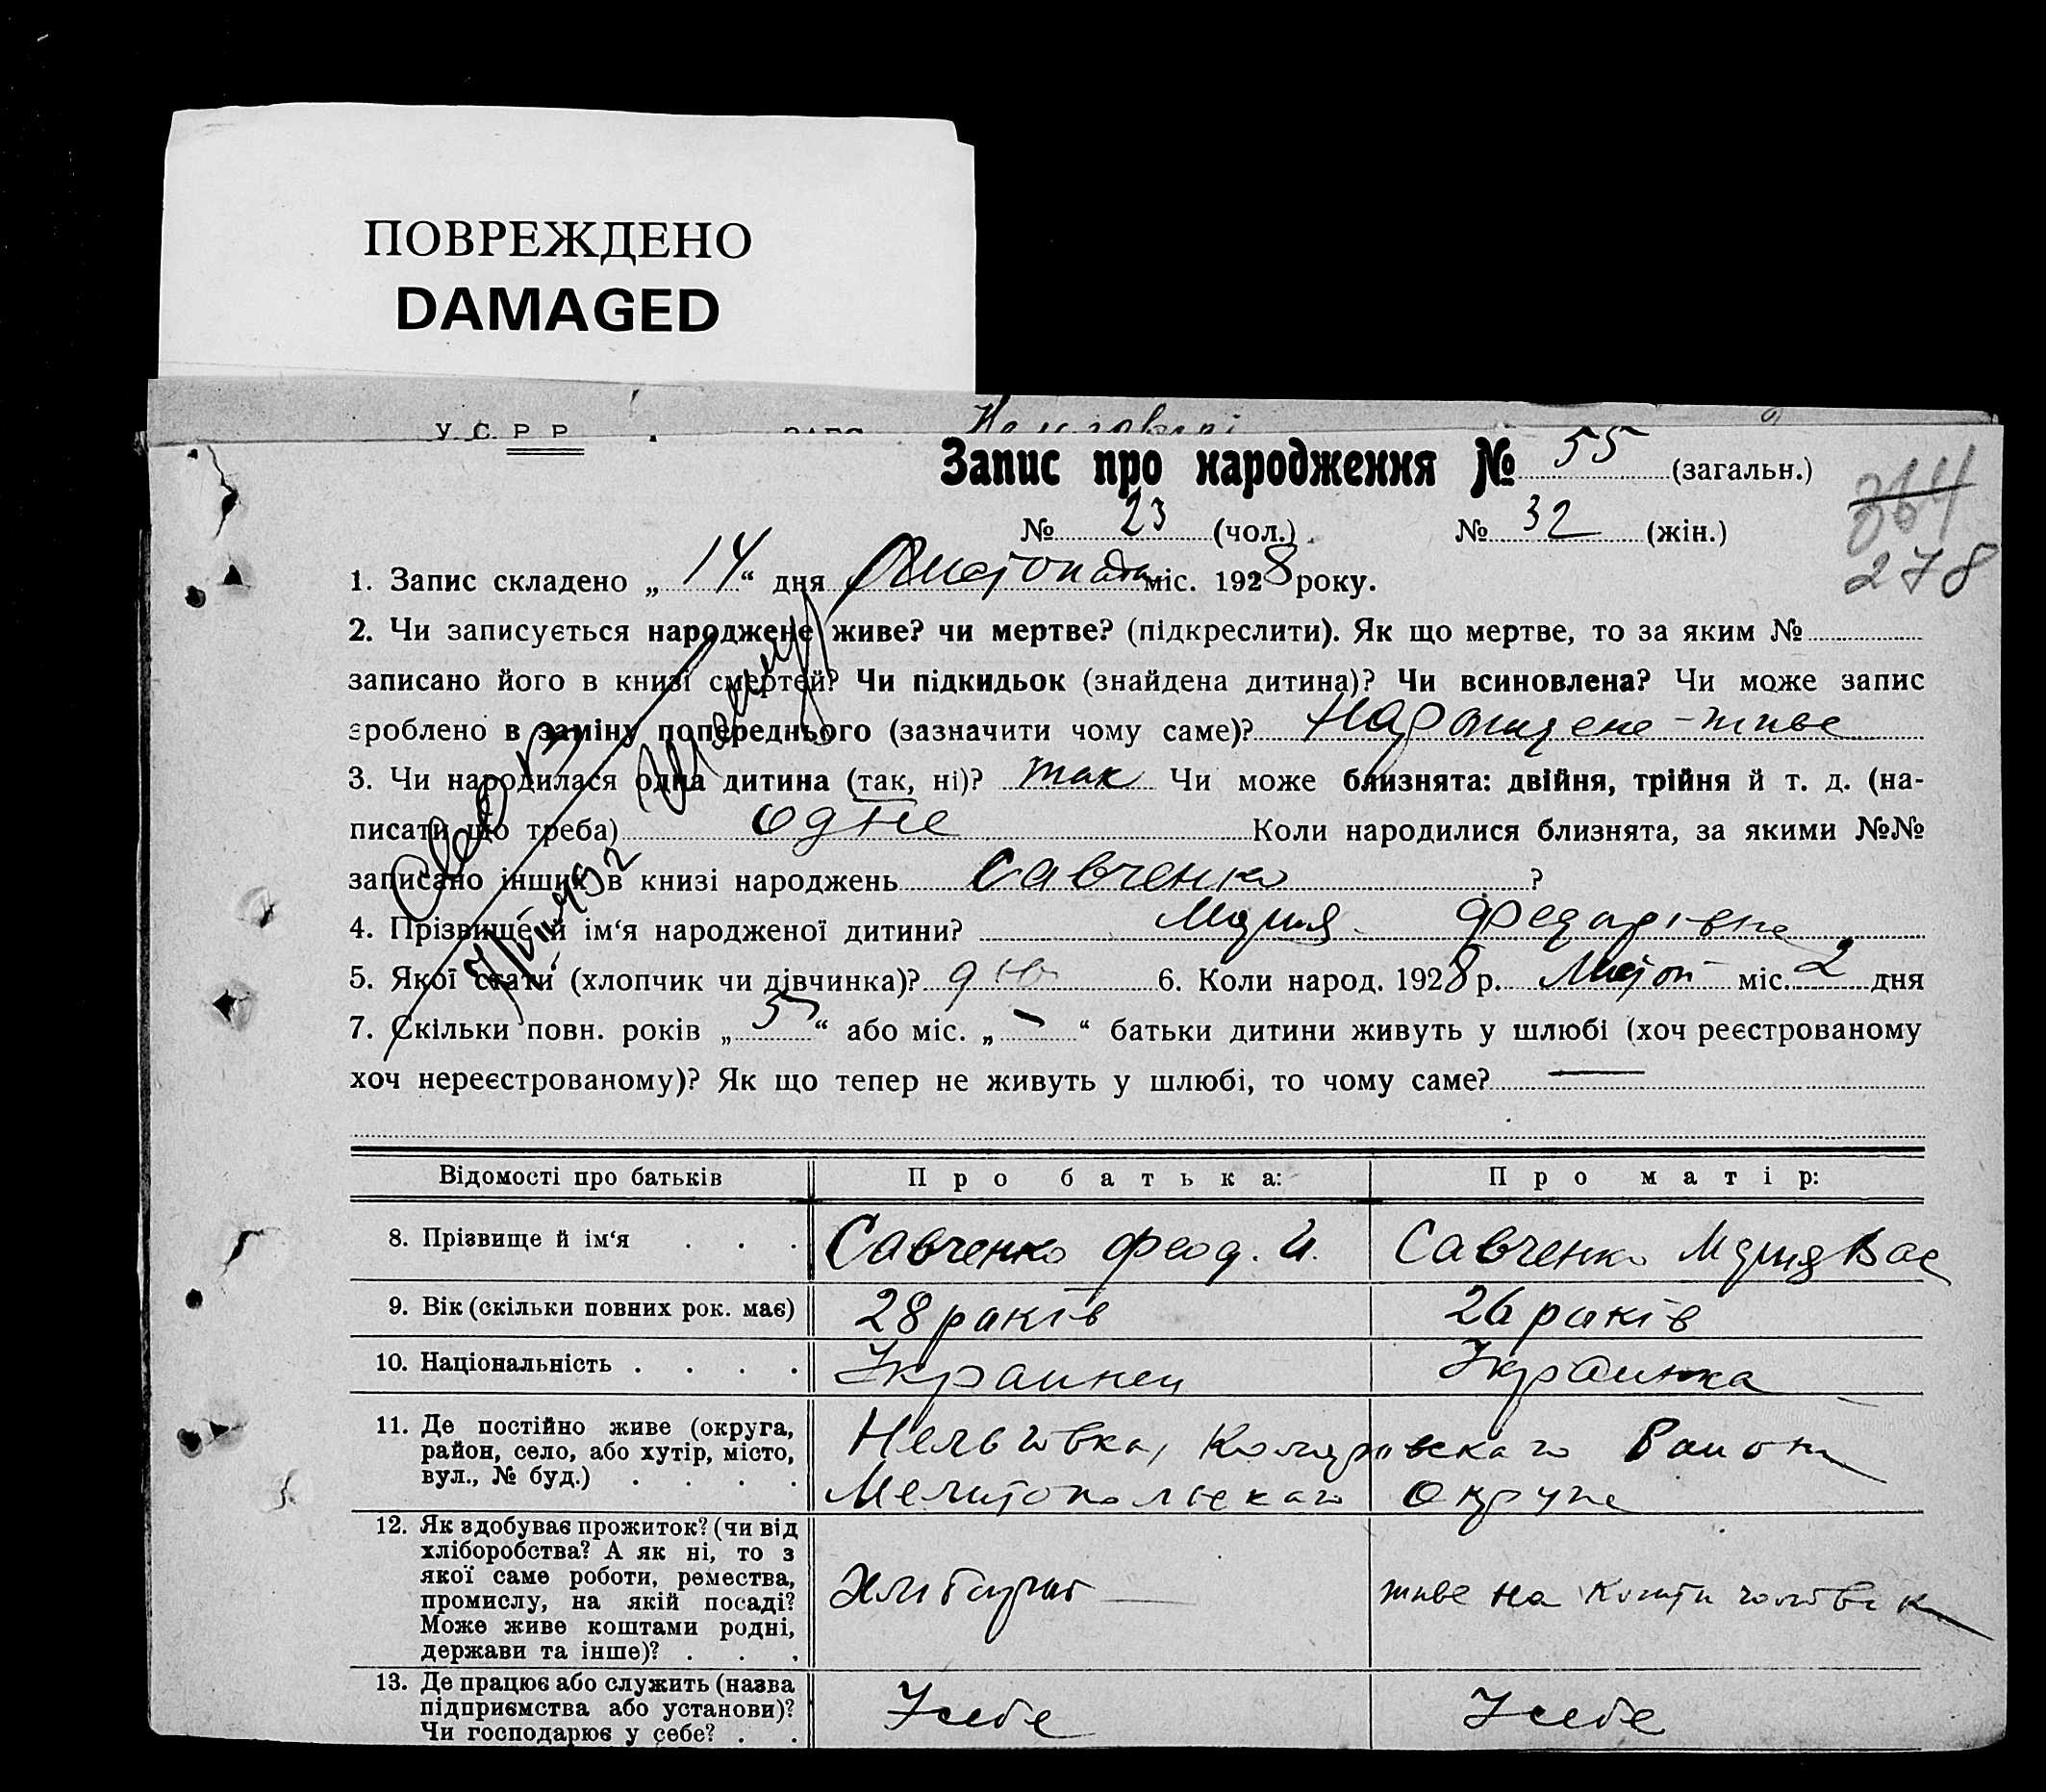 ПОВРЕЖДЕНО
DAMAGED
У.С.Р.Р.
Запис про народження № 55 (загальн.)
№ 23 (чол.) № 32 (жін.)
364
278
1. Запис складено „ 14 “ дня Листопада міс. 1928 року.
2. Чи записується народжене живе? чи мертве? (підкреслити). Як що мертве, то за яким №
записано його в книзі смертей? Чи підкидьок (знайдена дитина)? Чи всиновлена? Чи може запис
зроблено в заміну попереднього (зазначити чому саме)? Народжене - живе
3. Чи народилася одна дитина (так, ні)? так Чи може близнята: двійня, трійня й т. д. (на-
писати що треба) одне Коли народилися близнята, за якими №№
записано інших в книзі народжень Савченко ?
4. Прізвище й ім‘я народженої дитини? Мария Федорівна
5. Якої стати (хлопчик чи дівчинка)? 6. Коли народ. 1928 р. Листоп міс. 2 дня
7. Скільки повн. років „ 5 “ або міс. „ – “ батьки дитини живуть у шлюбі (хоч реєстрованому
хоч нереєстрованому)? Як що тепер не живуть у шлюбі, то чому саме? —
Відомості про батьків Про батька: Про матір:
8. Прізвище й ім‘я . . . Савченко Феод. И. Савченко Мария Вас
9. Вік (скільки повних рок. має) 28 років 26 років
10. Національність . . . . Украинец Украинка
11. Де постійно живе (округа,
район, село, або хутір, місто,
вул., № буд.) . . . .
Нельговка, района
Мелитопольскаго округи
12. Як здобуває прожиток? (чи від
хліборобства? А як ні, то з
якої саме роботи, ремества,
промислу, на якій посаді?
Може живе коштами родні,
держави та інше)? . . .
Хлибороб живе на кошти чоловіка
13. Де працює або служить (назва
підприємства або установи)?
Чи господарює у себе? . .
У себе У себе